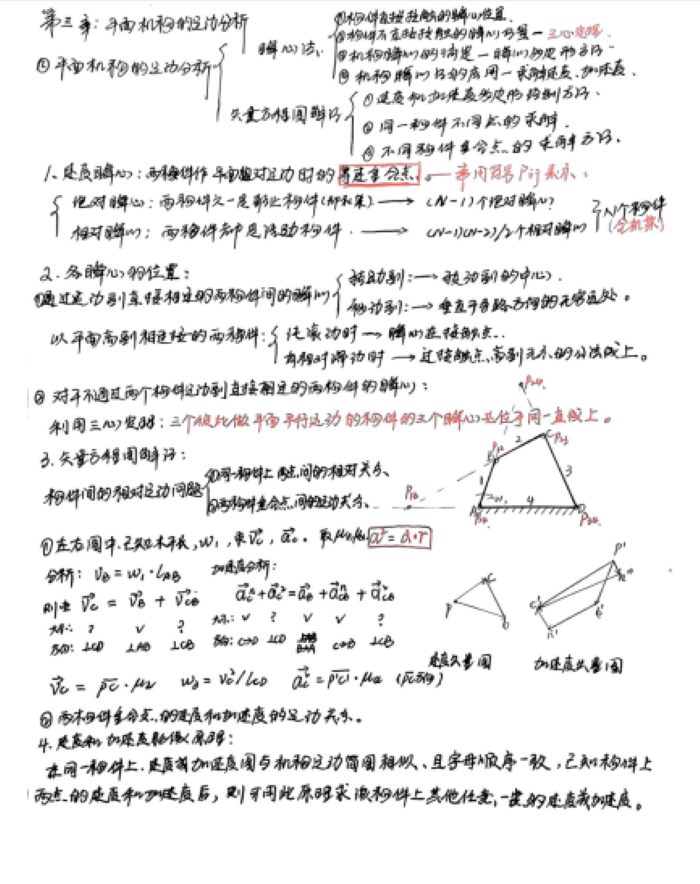 第三章：平面机构的运动分析
①平面机构的运动分析
瞬心法：
①构件直接接触的瞬心位置.
②构件不直接接触的瞬心位置—三心定理.
③机构瞬心的确定—瞬心多边形方法.
④机构瞬心的应用—求解速度、加速度.
矢量方程图解法
①速度和加速度多边形绘制方法.
②同一构件不同点的求解.
③不同构件重合点的求解方法.
1.速度瞬心：两构件作平面相对运动时的等速重合点.—常用符号Pij表示.
绝对瞬心：两构件之一是静止构件(即机架) → (N-1)个绝对瞬心
相对瞬心：两构件都是活动构件. → (N-1)(N-2)/2个相对瞬心
N个构件
(含机架)
2.各瞬心的位置：
①通过运动副直接相连的两构件间的瞬心
转动副：→ 转动副的中心.
移动副：→ 垂直于导路方向的无穷远处。
以平面高副相连接的两构件：
纯滚动时 → 瞬心在接触点.
有相对滑动时 → 过接触点高副元素的公法线上。
②对于不通过两个构件运动副直接相连的两构件的瞬心：
利用三心定理：三个彼此做平面平行运动的构件的三个瞬心必位于同一直线上。
3.矢量方程图解法：
构件间的相对运动问题
①同一构件上两点间的相对关系、
②两构件重合点间的运动关系、
P24
P12
B
2
C
P23
1
3
P13
W1
4
A
P14
D
P34
①在右图中.已知杆长，w1，求vC，aC。
分析：VB=w1·LAB
加速度分析：
则由 VC = VB + VCB
aC^n+aC^t=aB+aCB^n+aCB^t
大小：? √ ?
大小：√ ? √ √ ?
方向：⊥CD ⊥AB ⊥CB
方向：C→D ⊥CD B→A C→B ⊥CB
速度矢量图
加速度矢量图
②两构件重合点的速度和加速度的运动关系。
4.速度和加速度影像原理：
在同一构件上.速度或加速度图与机构运动简图相似、且字母顺序一致，已知构件上
两点的速度和加速度后，则可用此原理求该构件上其他任意一点的速度或加速度。